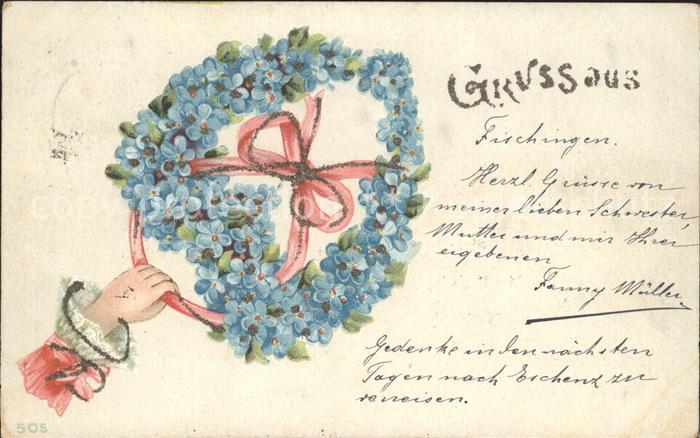 Gruss aus
Fischingen.
Herzl. Grüsse von
meiner lieben Schwester,
Mutter und mir Ihrer
ergebenen
Fanny Müller.
Gedenke in den nächsten
Tagen nach Eschenz zu
verreisen.
505